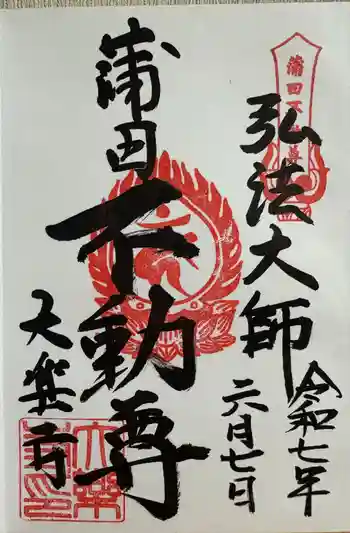 令和七年
六月七日
弘法大師
蒲田不動尊
蒲田不動尊
大楽寺